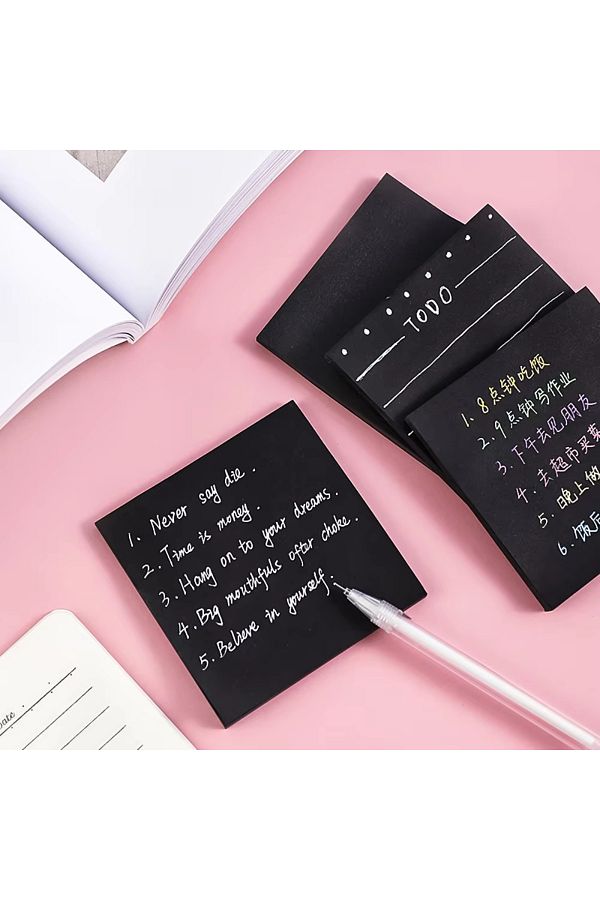 TODO
1. 8点钟吃饭
2. 9点钟写作业
3. 下午去见朋友
4. 去超市买菜
5. 晚上做
6. 饭后
1. Never say die.
2. Time is money.
3. Hang on to your dreams.
4. Big mouthfuls ofter choke.
5. Believe in yourself.